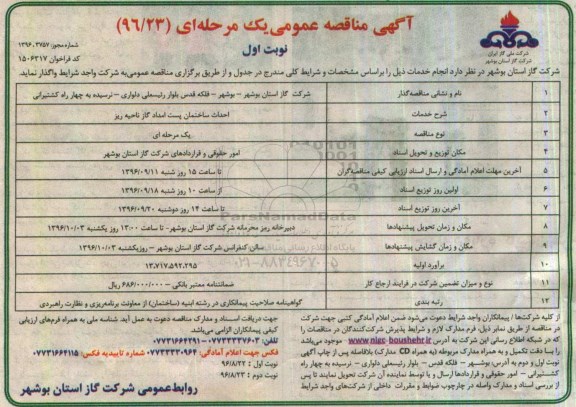 آگهی مناقصه عمومی یک مرحله‌ای (۹۶/۲۳)
نوبت اول
شماره مجوز: ۱۳۹۶.۳۷۵۷
کد فراخوان ۱۵۰۶۳۱۷
شرکت ملی گاز ایران
شرکت گاز استان بوشهر
شرکت گاز استان بوشهر در نظر دارد انجام خدمات ذیل را براساس مشخصات و شرایط کلی مندرج در جدول و از طریق برگزاری مناقصه عمومی به شرکت واجد شرایط واگذار نماید.
۱ نام و نشانی مناقصه‌گذار شرکت گاز استان بوشهر – بوشهر – فلکه قدس بلوار رئیسعلی دلواری – نرسیده به چهار راه کشتیرانی
۲ شرح خدمات احداث ساختمان پست امداد گاز ناحیه ریز
۳ نوع مناقصه یک مرحله ای
۴ مکان توزیع و تحویل اسناد امور حقوقی و قراردادهای شرکت گاز استان بوشهر
۵ آخرین مهلت اعلام آمادگی و ارسال اسناد ارزیابی کیفی مناقصه‌گران تا ساعت ۱۵ روز شنبه ۱۳۹۶/۰۹/۱۱
۶ اولین روز توزیع اسناد از ساعت ۱۰ روز شنبه ۱۳۹۶/۰۹/۱۸
۷ آخرین روز توزیع اسناد تا ساعت ۱۴ روز دوشنبه ۱۳۹۶/۰۹/۲۰
۸ مکان و زمان تحویل پیشنهادها دبیرخانه ریز محرمانه شرکت گاز استان بوشهر- تا ساعت ۱۳:۰۰ روز یکشنبه ۱۳۹۶/۱۰/۰۳
۹ مکان و زمان گشایش پیشنهادها سالن کنفرانس شرکت گاز استان بوشهر – روز یکشنبه ۱۳۹۶/۱۰/۰۳
۱۰ برآورد اولیه ۱۳.۷۱۷.۵۹۲.۲۹۵
۱۱ نوع و میزان تضمین شرکت در فرایند ارجاع کار ضمانتنامه معتبر بانکی – ۶۸۶/۰۰۰/۰۰۰ ریال
۱۲ رتبه بندی گواهینامه صلاحیت پیمانکاری در رشته ابنیه (ساختمان) از معاونت برنامه‌ریزی و نظارت راهبردی
از کلیه شرکت‌ها / پیمانکاران واجد شرایط دعوت می‌شود ضمن اعلام آمادگی کتبی جهت شرکت
در مناقصه از طریق نمابر ذیل، فرم مدارک لازم و شرایط پذیرش شرکت‌کنندگان در مناقصات را
که در شبکه اطلاع رسانی این شرکت به آدرس www.nigc-boushehr.ir موجود می‌باشد
را با دقت تکمیل و به همراه مدارک مربوطه (به همراه CD مدارک) بلافاصله پس از چاپ آگهی
نوبت اول و دوم به آدرس: بوشهر – فلکه قدس – بلوار رئیسعلی دلواری – نرسیده به چهار راه
کشتیرانی – امور حقوقی و قراردادها ارسال و یا توسط نماینده آن شرکت تحویل نمایند تا پس
از بررسی اسناد و مدارک واصله در چارچوب ضوابط و مقررات داخلی از شرکت‌های واجد شرایط
جهت دریافت اسناد و مدارک مناقصه دعوت به عمل آید. شناسه ملی به همراه فرم‌های ارزیابی
کیفی پیمانکاران الزامی می‌باشد.
تلفن: ۰۷۷۳۳۳۳۷۶۰۲ – ۰۷۷۳۱۶۶۴۳۹۱
فکس جهت اعلام آمادگی: ۰۷۷۳۳۳۳۰۹۶۴ شماره تاییدیه فکس: ۰۷۷۳۱۶۶۴۱۱۵
نوبت اول: ۹۶/۸/۲۲
نوبت دوم: ۹۶/۸/۲۳
روابط عمومی شرکت گاز استان بوشهر
ParsNamadData
۰۲۱-۸۸۳۴۹۶۷۰-۵